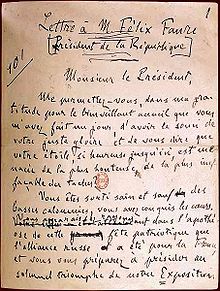 1
Lettre à M. Félix Faure
Président de la République
Monsieur le Président,
Me permettez-vous, dans ma gra-
titude pour le bienveillant accueil que vous
m'avez fait un jour, d'avoir le souci de
votre juste gloire et de vous dire que
votre étoile, si heureuse jusqu'ici, est me-
nacée de la plus honteuse, de la plus inef-
façable des taches
Vous êtes sorti sain et sauf des
basses calomnies, vous avez conquis les cœurs.
dans l'apothé-
ose de cette fête patriotique que
l'alliance russe a été pour la France
et vous vous préparez à présider au
solennel triomphe de notre Exposition